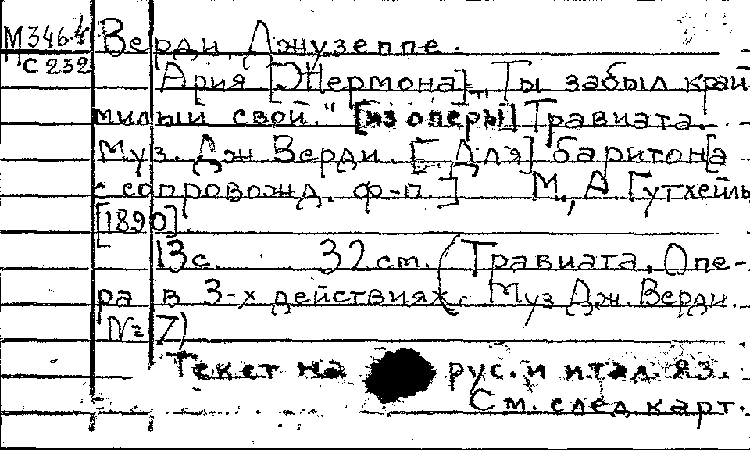 М346.4 Верди, Джузеппе.
П С232
Ария [Жермона] „Ты забыл край
милый свой." [из оперы] Травиата.
Муз. Дж Верди. [Для] баритон[а
с сопровожд. ф-п.] М., А. Гутхейль
[1890].
13с. 32 см. (Травиата. Опе-
ра в 3-х действиях. Муз Дж. Верди.
№ 7)
Текст на рус. и итал. яз.
См. след карт.